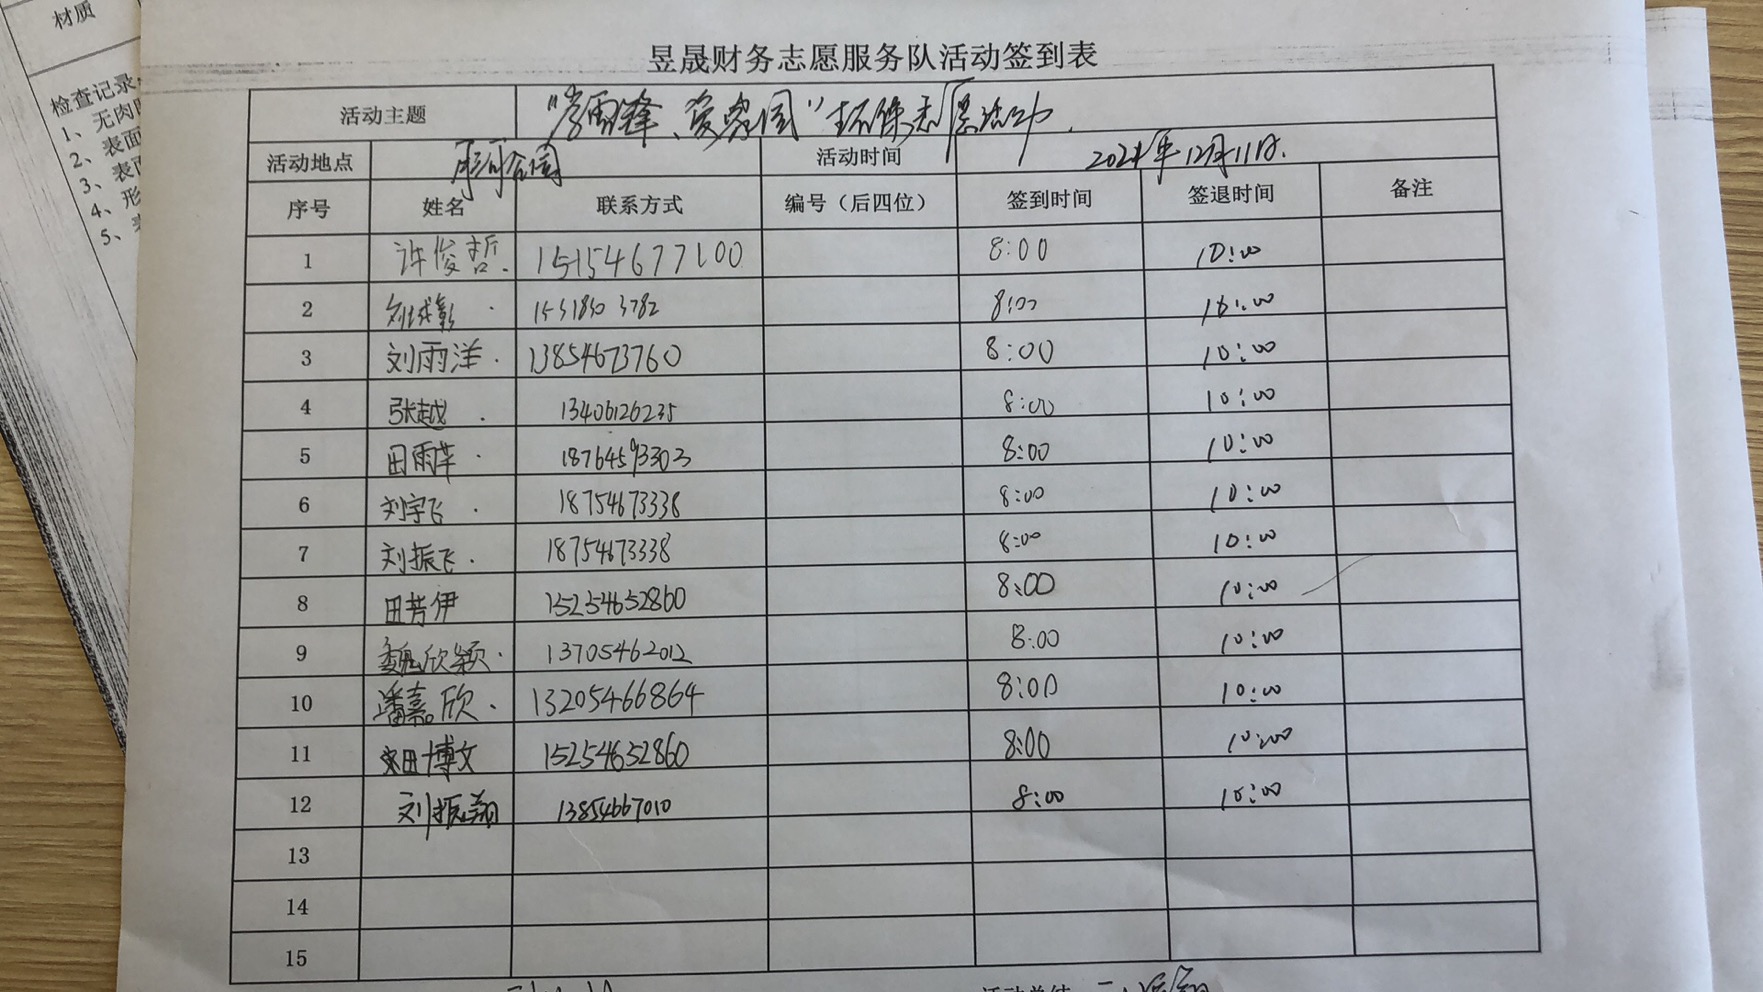 材质
检查记录
1、无肉眼
2、表面
3、表面
4、形
5、表
昱晟财务志愿服务队活动签到表
活动主题 “学雷锋、爱家园”环保志愿活动.
活动地点 公园 活动时间 2021年12月11日.
序号 姓名 联系方式 编号（后四位） 签到时间 签退时间 备注
1 许俊哲. 15154677100 8:00 10:00
2 8:00 10:00
3 刘雨洋. 13854673760 8:00 10:00
4 张越. 13406126235 8:00 10:00
5 田雨苹. 18764593303 8:00 10:00
6 刘宇飞. 18754673338 8:00 10:00
7 刘振飞. 18754673338 8:00 10:00
8 田芳伊 15254652860 8:00 10:00
9 魏欣颖. 13705462012 8:00 10:00
10 潘嘉欣. 13205466864 8:00 10:00
11 田博文 15254652860 8:00 10:00
12 刘振翔 13854667010 8:00 10:00
13
14
15
活动总结